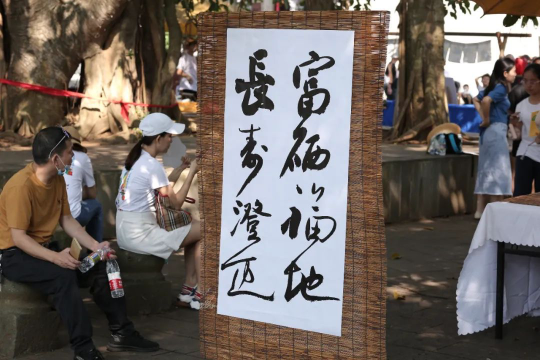 富硒福地
長寿澄迈